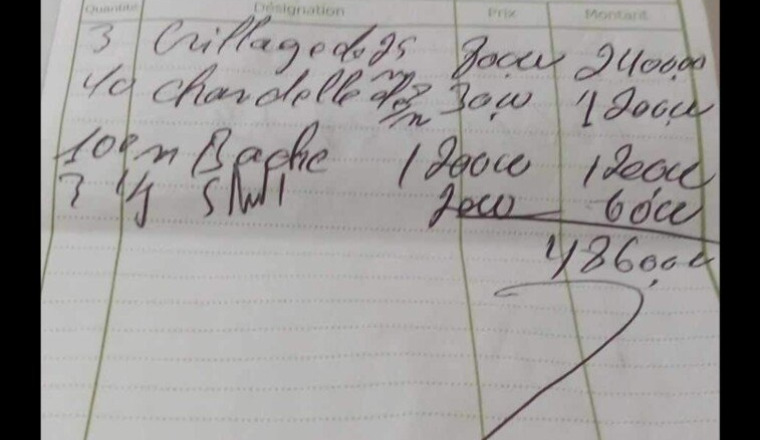 Quantité Désignation Prix Montant
3 Grillage de 25 80.000 240.000
40 chandelle de 3.000 120.000
100 m Bache 120000 120.000
3 kg 2000 6000
486.000